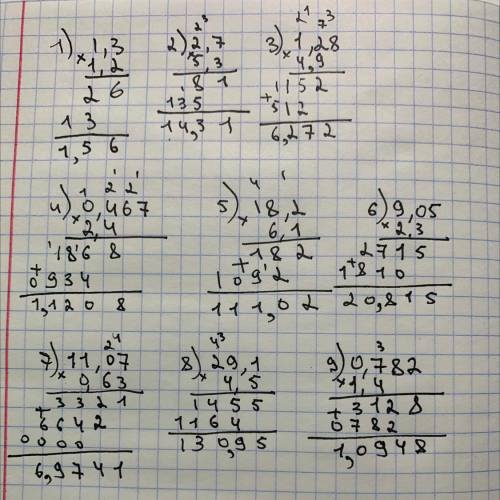 1) 1,3
× 1,2
2 6
1 3
1,5 6
2) 2,7
× 5,3
8 1
1 3 5
1 4,3 1
3) 1,28
× 4,9
1 1 5 2
+ 5 1 2
6,2 7 2
4) 0,467
× 2,4
1 8 6 8
+ 0 9 3 4
1,1 2 0 8
5) 18,2
× 6,1
1 8 2
+ 1 0 9 2
1 1 1,0 2
6) 9,05
× 2,3
2 7 1 5
+ 1 8 1 0
2 0,8 1 5
7) 11,07
× 0,63
3 3 2 1
+ 6 6 4 2
0 0 0 0
6,9 7 4 1
8) 29,1
× 4,5
1 4 5 5
1 1 6 4
1 3 0,9 5
9) 0,782
× 1,4
+ 3 1 2 8
0 7 8 2
1,0 9 4 8